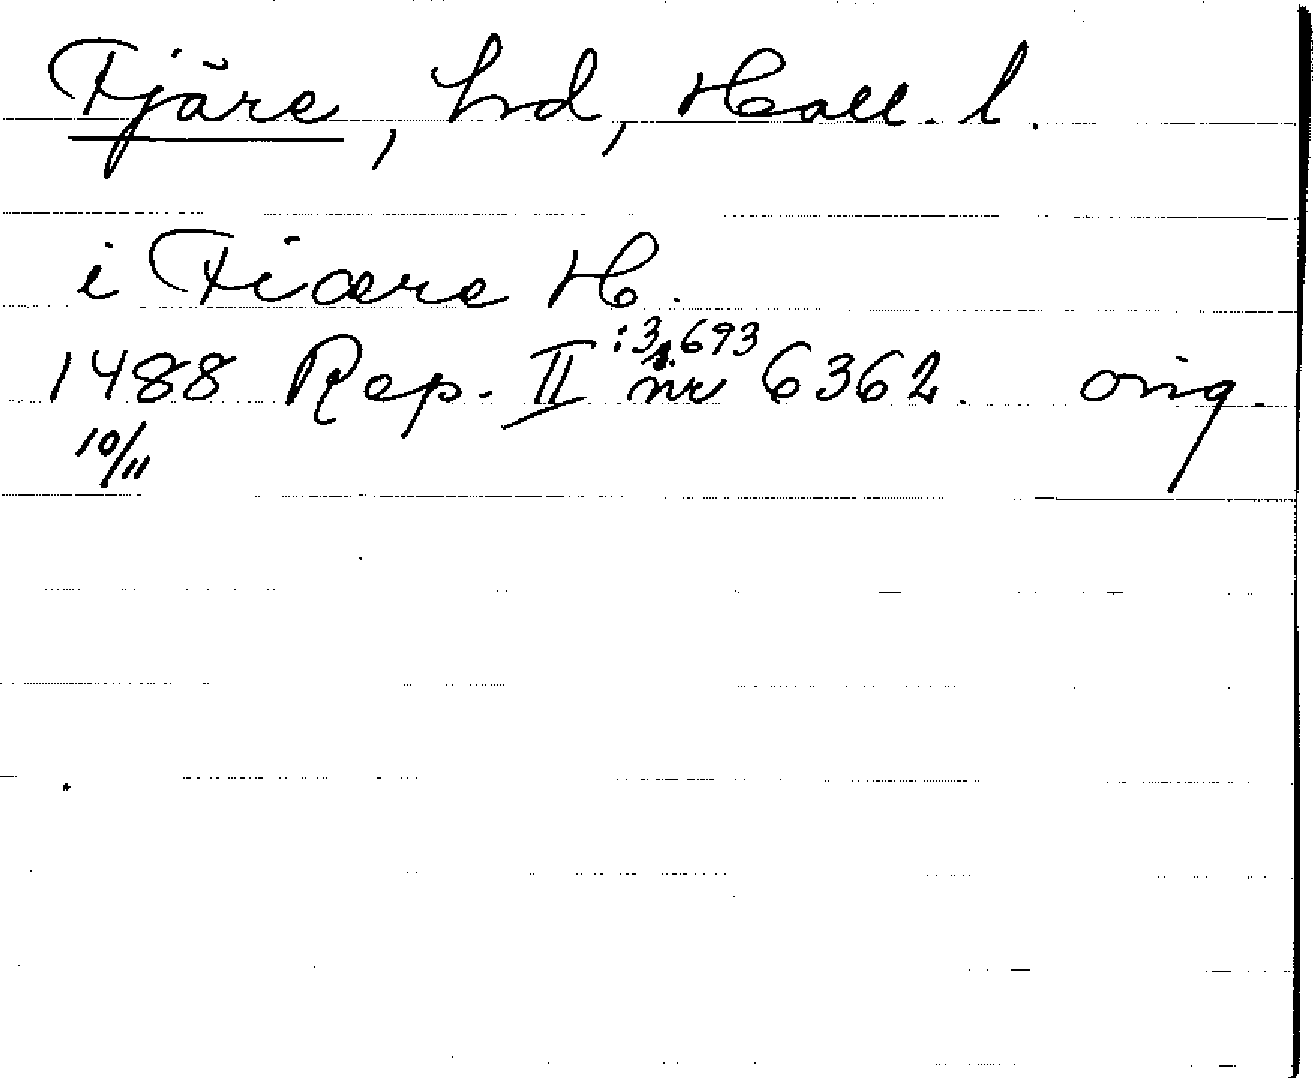 Fjäre, hd, Hall. l.
i Fiære H.
1488 Rep. II :3 s. 693 nr 6362. orig.
10/11